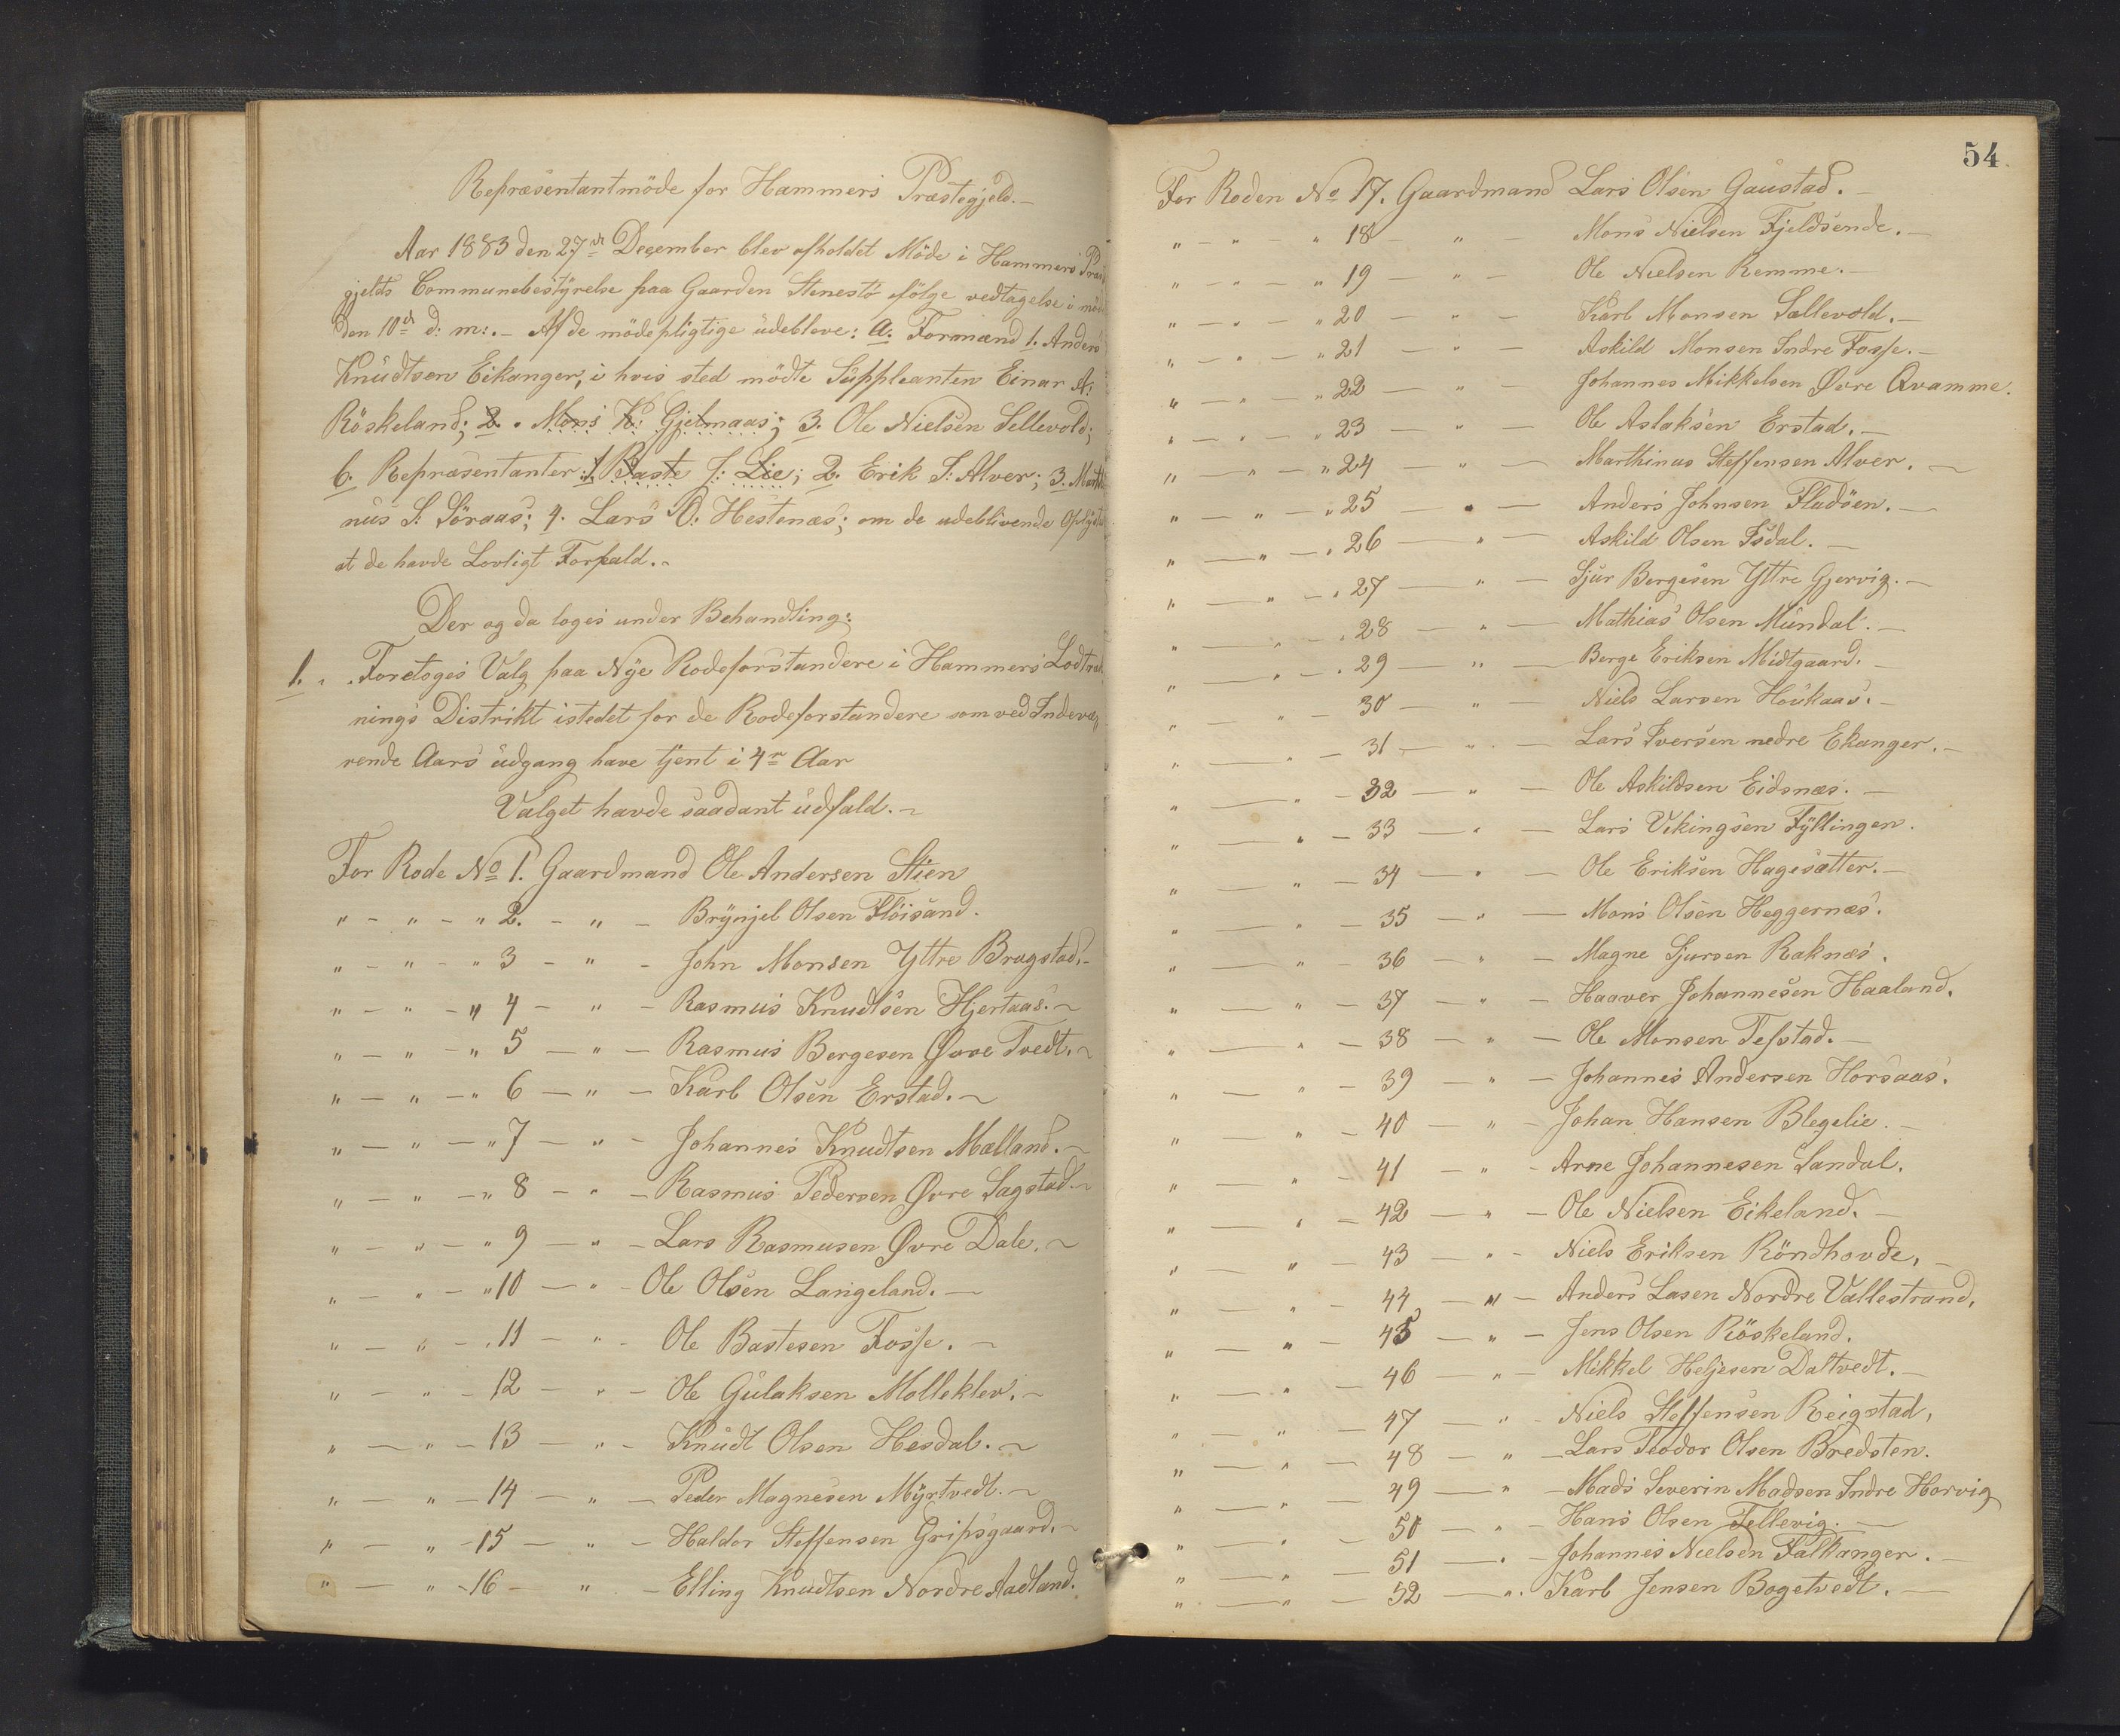 Repræsentantmöde for Hammers Præstegjeld.-
Aar 1883 den 27de December blev afholdet Möde i Hammers Præs
gjelds Communebestÿrelse paa Gaarden Stenestö ifölge vedtagelse i möde
den 10de d: m:.- Af de mödepligtige udebleve: a. Formænd 1. Anders
Knudtsen Eikanger, i hvis sted mödte Suppleanten Einar A:
Röskeland; 2. Mons K: Gjelmaas; 3. Ole Nielsen Sellevold;
b. Repræsentanter: 1. Baste J: Lie; 2. Erik S: Alver; 3. Marthi
nus S. Söraas; 4. Lars O: Hestenæs; om de udeblivende Oplÿstes
at de havde Lovligt Forfald.-
Der og da toges under Behandling:
1. Foretoges Valg paa Nÿe Rodeforstandere i Hammers Lodtræk
nings Distrikt istedet for de Rodeforstandere som ved Indevæ„
rende Aars udgang have tjent i 4re Aar
Valget havde saadant udfald.-
For Rode No 1. Gaardmand Ole Andersen Stien
„ - „ - „ 2. - „ - Brÿnjel Olsen Flöisand.
„ - „ - „ 3 - „ - John Monsen Yttre Bragstad.-
„ - „ - „ 4 - „ - Rasmus Knudtsen Hjertaas.-
„ - „ - „ 5 - „ - Rasmus Bergesen Øvre Tvedt.-
„ - „ - „ 6 - „ - Karl Olsen Erstad.-
„ - „ - „ 7 - „ - Johannes Knudtsen Mælland.-
„ - „ - „ 8 - „ - Rasmus Pedersen Øvre Sagstad.-
„ - „ - „ 9 - „ - Lars Rasmusen Øvre Dale.-
„ - „ - „ 10 - „ - Ole Olsen Langeland.-
„ - „ - „ 11 - „ - Ole Bastesen Fosse.-
„ - „ - 12 - „ - Ole Gulaksen Molleklev.-
„ - „ - 13 - „ - Knudt Olsen Hesdal.-
„ - „ - 14 - „ - Peder Magnesen Mÿrtvedt.-
„ - „ - 15 - „ - Haldor Steffensen Gripsgaard.-
„ - „ - 16 - „ - Elling Knudtsen Nordre Aadland.
54
For Roden No 17. Gaardmand Lars Olsen Gaustad.-
„ - „ „ 18 - „ - Mons Nielsen Fjeldsende.-
„ - „ - „ 19 - „ - Ole Nielsen Remme.-
„ - „ - „ 20 - „ - Karl Monsen Sællevold.-
„ - „ - „ 21 - „ - Askild Monsen Indre Fosse.-
„ - „ - „ 22 - „ - Johannes Mikkelsen Øvre Qvamme.
„ - „ - „ 23 - „ - Ole Aslaksen Erstad.-
„ - „ - „ 24 „ - Marthinus Steffensen Alver.-
„ - „ - „ 25 - „ - Anders Johnsen Fladöen.-
„ - „ - „ 26 - „ - Askild Olsen Isdal.-
„ - „ - „ 27 - „ - Sjur Bergesen Yttre Gjervig.-
„ - „ - „ 28 - „ - Mathias Olsen Mundal.-
„ - „ - „ 29 - „ - Berge Eriksen Midtgaard.-
„ - „ - 30 - „ - Niels Larsen Houkaas.-
„ - „ - 31 - „ - Lars Iversen nedre Ekanger.-
„ - „ - 32 - „ - Ole Askildsen Eidsnæs.-
„ - „ - 33 - „ - Lars Vikingsen Fÿllingen.
„ - „ - 34 - „ - Ole Eriksen Hagesætter.-
„ - „ - 35 - „ - Mons Olsen Heggernæs.
„ - „ - 36 - „ - Magne Sjursen Raknæs.
„ - „ - 37 - „ - Haaver Johannesen Haaland.
„ - „ - 38 - „ - Ole Monsen Tefstad.-
„ - „ - 39 - „ - Johannes Andersen Horsaas.
„ - „ - 40 - „ - Johan Hansen Blegelie.-
„ - „ - 41 - „ - Arne Johannesen Sandal.
„ - „ - 42 - „ - Ole Nielsen Eikeland.-
„ - „ - 43 - „ - Niels Eriksen Röndhovde.-
„ - „ - 44 - „ - Anders Lasen Nordre Vallestrand.
„ - „ - 45 - „ - Jens Olsen Röskeland.
„ - „ - 46 - „ - Mikkel Heljesen Daltvedt.-
„ - „ - 47 - „ - Niels Steffensen Reigstad.
„ - „ - 48 - „ - Lars Teodor Olsen Bredsten.
„ - „ - 49 - „ - Mads Severin Madsen Indre Horvig
„ - „ - 50 - „ - Hans Olsen Tellevig.-
„ - „ - 51 - „ - Johannes Nielsen Falkanger.-
„ - „ - 52 - „ Karl Jensen Bogetvedt.-